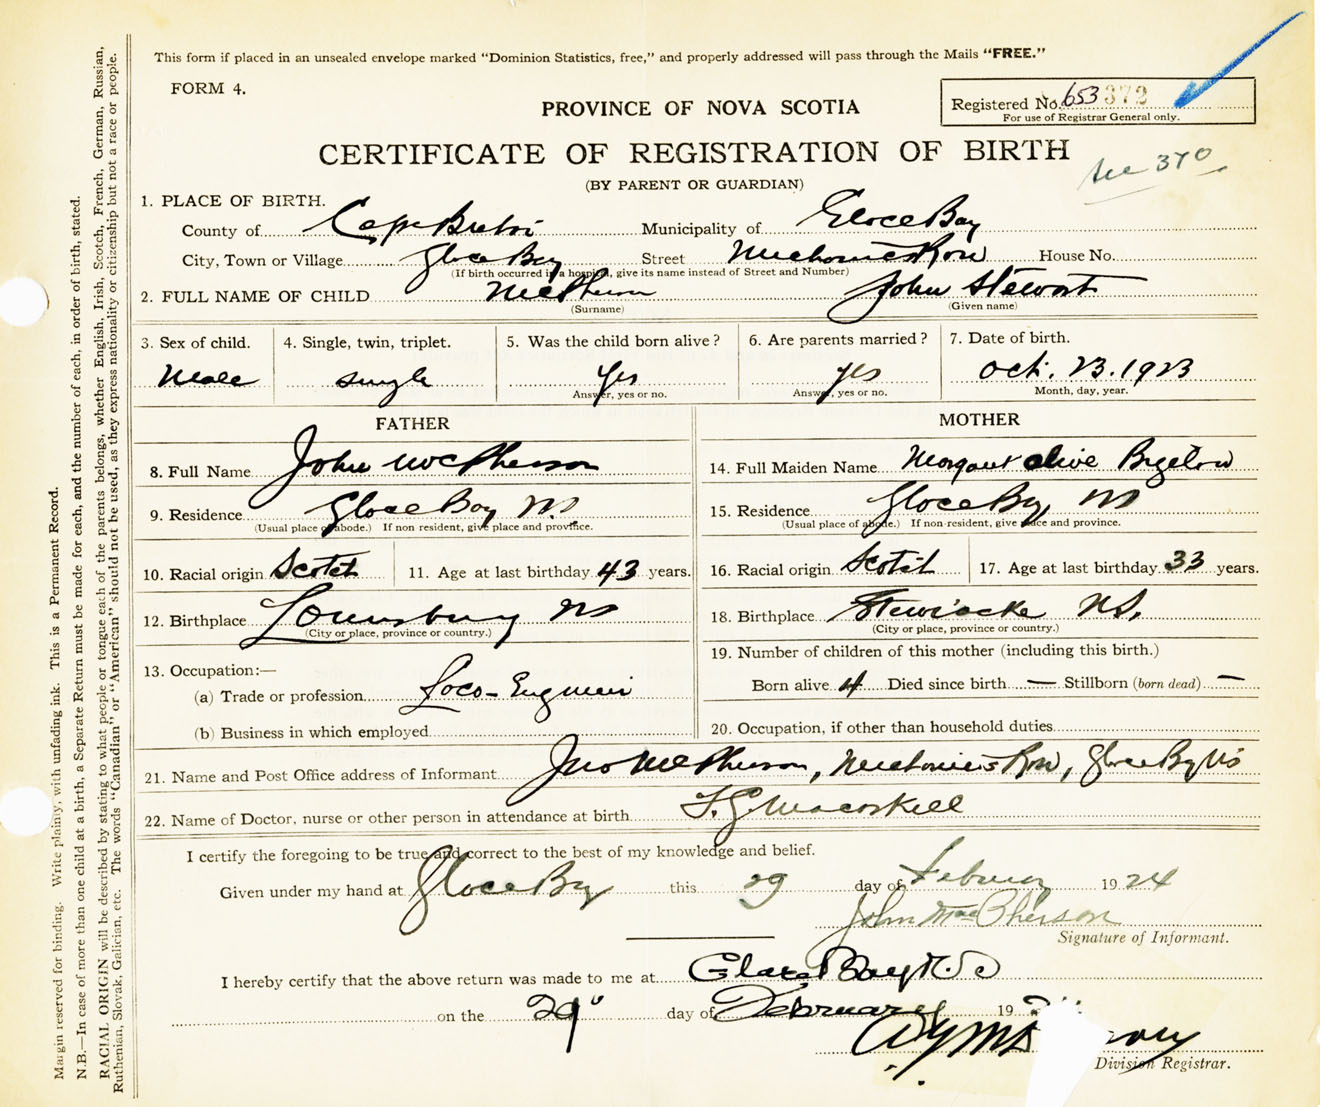 This form if placed in an unsealed envelope marked "Dominion Statistics, free," and properly addressed will pass through the Mails "FREE."
FORM 4.
PROVINCE OF NOVA SCOTIA
Registered No. 653 372
For use of Registrar General only.
CERTIFICATE OF REGISTRATION OF BIRTH
See 370
(BY PARENT OR GUARDIAN)
1. PLACE OF BIRTH.
County of Cape Breton Municipality of Glace Bay
City, Town or Village Glace Bay Street Mechanics Row House No.
(If birth occurred in a hospital, give its name instead of Street and Number)
2. FULL NAME OF CHILD McPherson John Stewart
(Surname) (Given name)
3. Sex of child. 4. Single, twin, triplet. 5. Was the child born alive? 6. Are parents married? 7. Date of birth.
Male single yes yes Oct. 23. 1923
Answer, yes or no. Answer, yes or no. Month, day, year.
FATHER MOTHER
8. Full Name John McPherson 14. Full Maiden Name Margaret Olive Bigelow
9. Residence Glace Bay N.S 15. Residence Glace Bay NS
(Usual place of abode.) If non resident, give place and province. (Usual place of abode.) If non-resident, give place and province.
10. Racial origin Scotch 11. Age at last birthday 43 years. 16. Racial origin Scotch 17. Age at last birthday 33 years.
12. Birthplace NS 18. Birthplace Stewiacke N.S.
(City or place, province or country.) (City or place, province or country.)
13. Occupation:— 19. Number of children of this mother (including this birth.)
(a) Trade or profession Loco-Engineer Born alive 4 Died since birth — Stillborn (born dead) —
(b) Business in which employed 20. Occupation, if other than household duties
21. Name and Post Office address of Informant Jno McPherson, Mechanics Row, Glace Bay NS
22. Name of Doctor, nurse or other person in attendance at birth Macaskill
I certify the foregoing to be true and correct to the best of my knowledge and belief.
Given under my hand at Glace Bay this 29 day of February 1924
John MacPherson
Signature of Informant.
I hereby certify that the above return was made to me at Glace Bay N.S
on the 29" day of February 19
Division Registrar.
Margin reserved for binding. Write plainly, with unfading ink. This is a Permanent Record.
N.B.—In case of more than one child at a birth, a Separate Return must be made for each, and the number of each, in order of birth, stated.
RACIAL ORIGIN will be described by stating to what people or tongue each of the parents belongs, whether English, Irish, Scotch, French, German, Russian,
Ruthenian, Slovak, Galician, etc. The words "Canadian" or "American" should not be used, as they express nationality or citizenship but not a race or people.